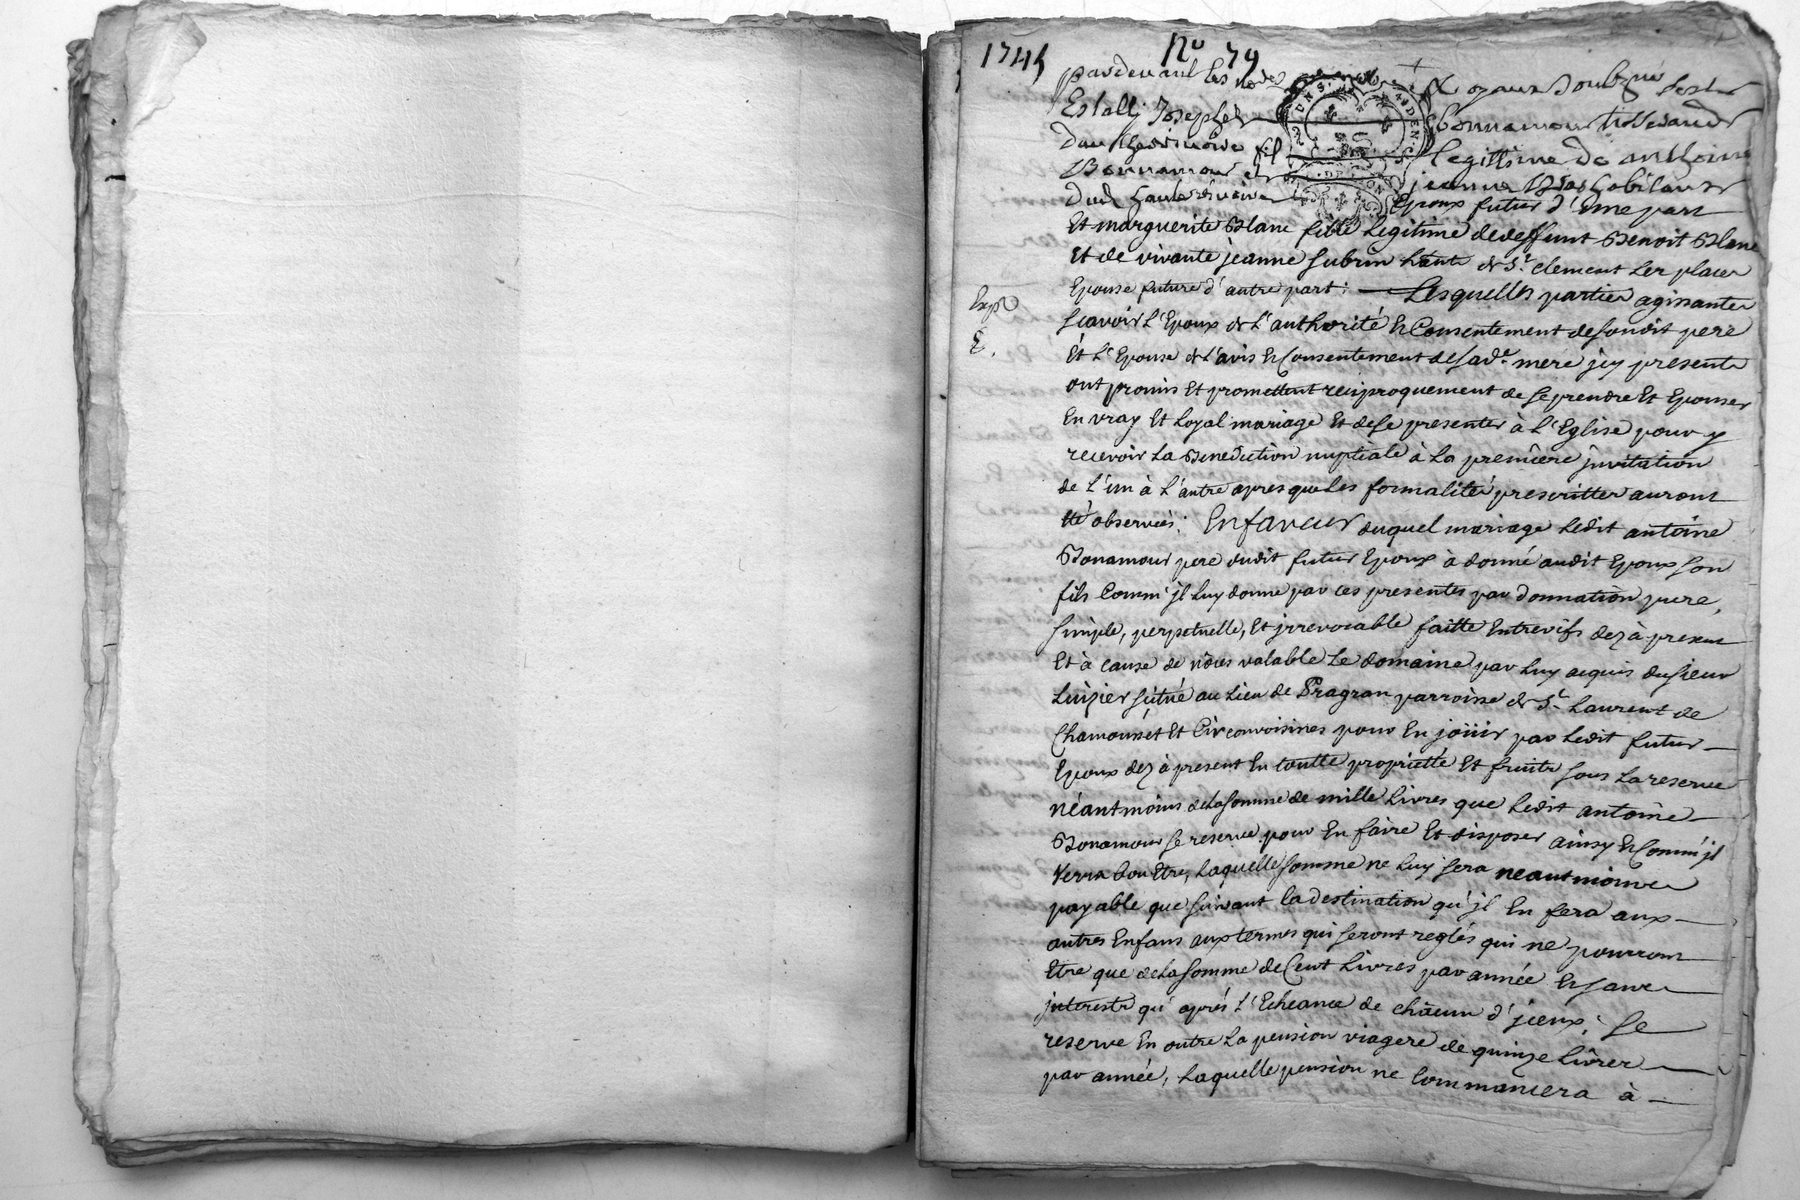 1745
No 79
pardevant les no.res Royaux Soubznés
Estally Joseph Bonnamour tisserand
fils legittime de anthoine
Bonnamour et jeanne habitans
Epoux futur d'Une part
Et marguerite Blanc fille Legitime dedeffunt Benoit Blanc
Et de vivante jeanne Subrin habte de St. Clement Les places
Epouse future d'autre part: Lesquelles parties agissantes
Scavoir L'Epoux de L'authorité & Consentement desondit pere
Et L'Epouse de L'avis & Consentement de sade. mere jcy presente
ont promis Et promettent reciproquement de se prendre Et Epouser
En vray Et Loyal mariage Et de se presenter à L'Eglise pour y
recevoir La Benediction nuptiale à La premiere jnvitation
de L'un à L'autre apres que Les formalités prescrittes auront
Eté observées: En faveur duquel mariage Ledit antoine
Bonamour pere dudit futur Epoux à donné audit Epoux son
fils Comm' jl Luy donne par ces presentes par Donnation pure,
Simple, perpetuelle, Et jrrevocable faitte Entrevifs dez à present
Et à cause de nôces valable Le domaine par Luy acquis du sieur
Luizier scitué au Lieu de Pragran parroisse de St. Laurent de
Chamousset Et Circonvoisines pour En joüir par Ledit futur
Epoux dez à present En toutte proprietté Et fruits sous La reserve
néantmoins de La Somme de mille Livres que Ledit antoine
Bonamour se reserve pour En faire Et disposer ainsy & Comm' jl
Verra bon Etre, Laquelle somme ne Luy sera neantmoins
payable que suivant la destination qu'jl En fera aux
autres Enfans aux termes qui seront reglés qui ne pourront
Etre que de La Somme de Cent Livres par année & sans
jnterests qu'après L'Echeance de châcun d'jceux; Se
reserve En outre La pension viagere de quinze Livres
par année, Laquelle pension ne Commancera à
Expé